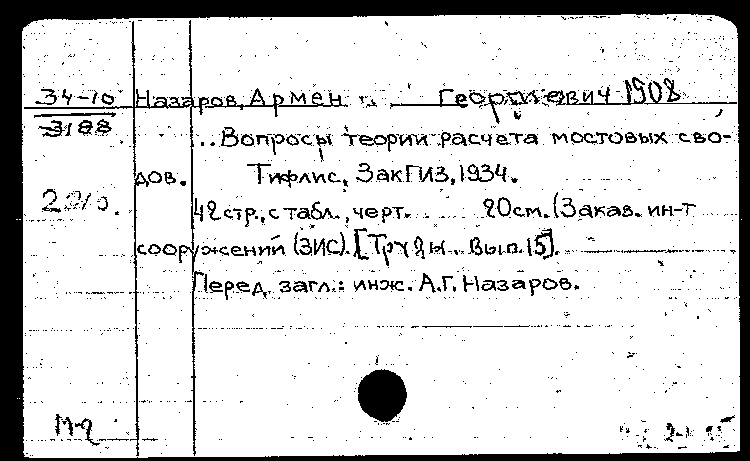 34-10 Назаров, Армен Георгиевич 1908
3188
..Вопросы теории расчета мостовых сво-
дов. Тифлис, ЗакГИЗ, 1934.
42 стр., с табл., черт. 20см. (Закав. ин-т
сооружений (ЗИС). [Труды. Вып. 15].
Перед загл.: инж. А.Г. Назаров.
М-2